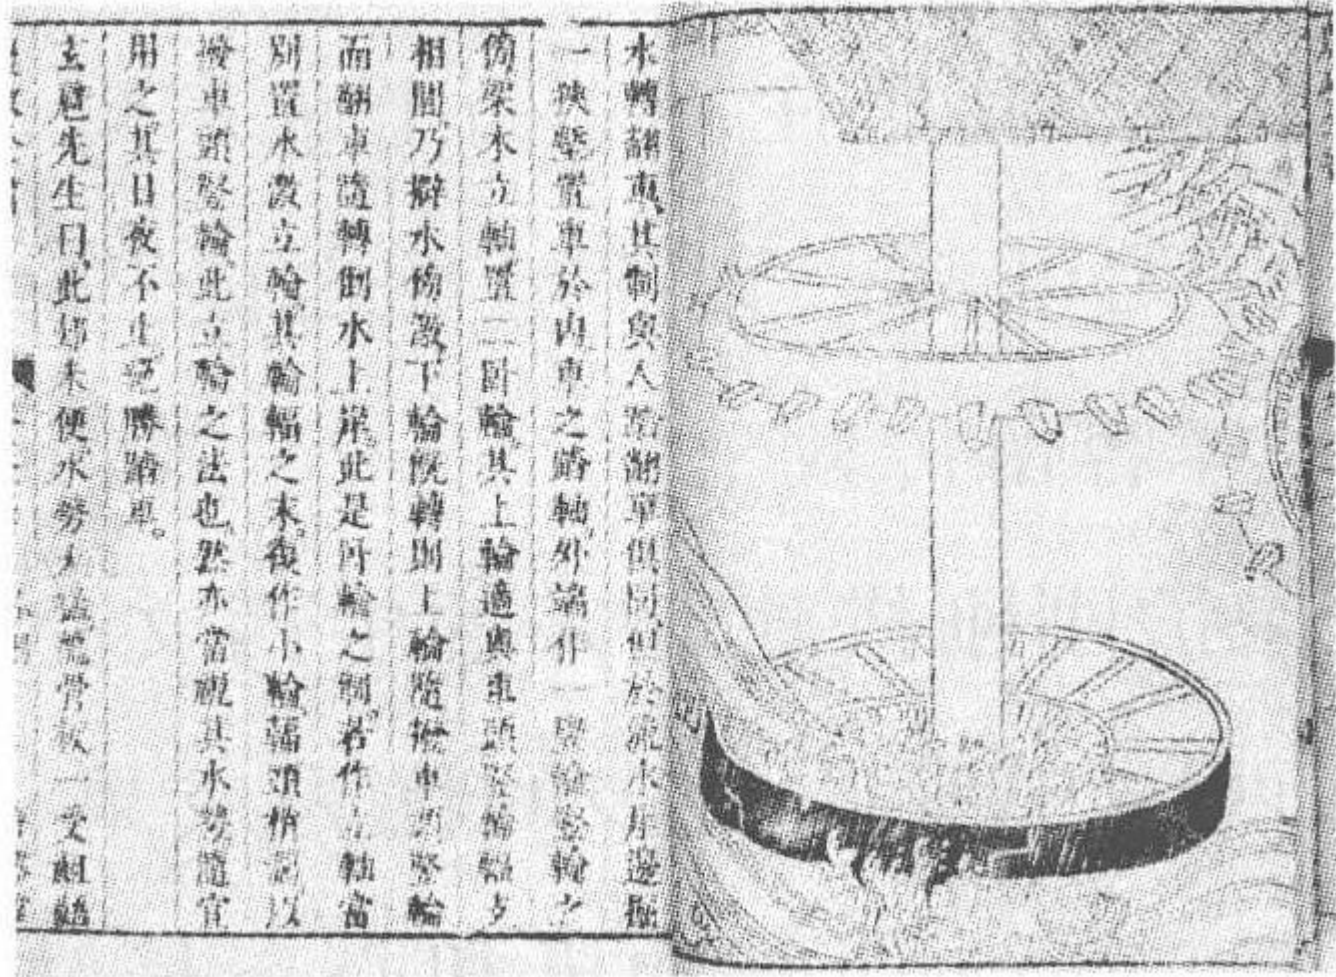 水轉翻車其制與人踏翻車俱同但於流水岸邊掘
一狹塹置車於內車之踏軸外端作一竪輪竪輪之
傍架木立軸置二卧輪其上輪適與車頭竪輪輻支
相間乃擗水傍激下輪既轉則上輪隨撥車頭竪輪
而翻車隨轉倒水上岸。此是卧輪之制。若作立軸當
別置水激立輪其輪輻之末。復作小輪輻頭稍闊以
撥車頭竪輪此立輪之法也然亦當視其水勢隨宜
用之其日夜不止絕勝踏車。
玄扈先生曰此却未便水勢太猛龍骨板一受齟齬